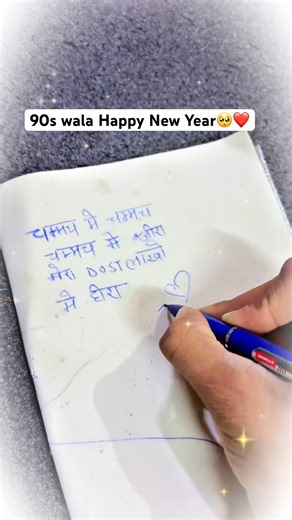 90s wala Happy New Year🥺❤️
चम्मच मे चम्मच
चम्मच मे जीरा
मेरा DOST लाखो
मे हीरा